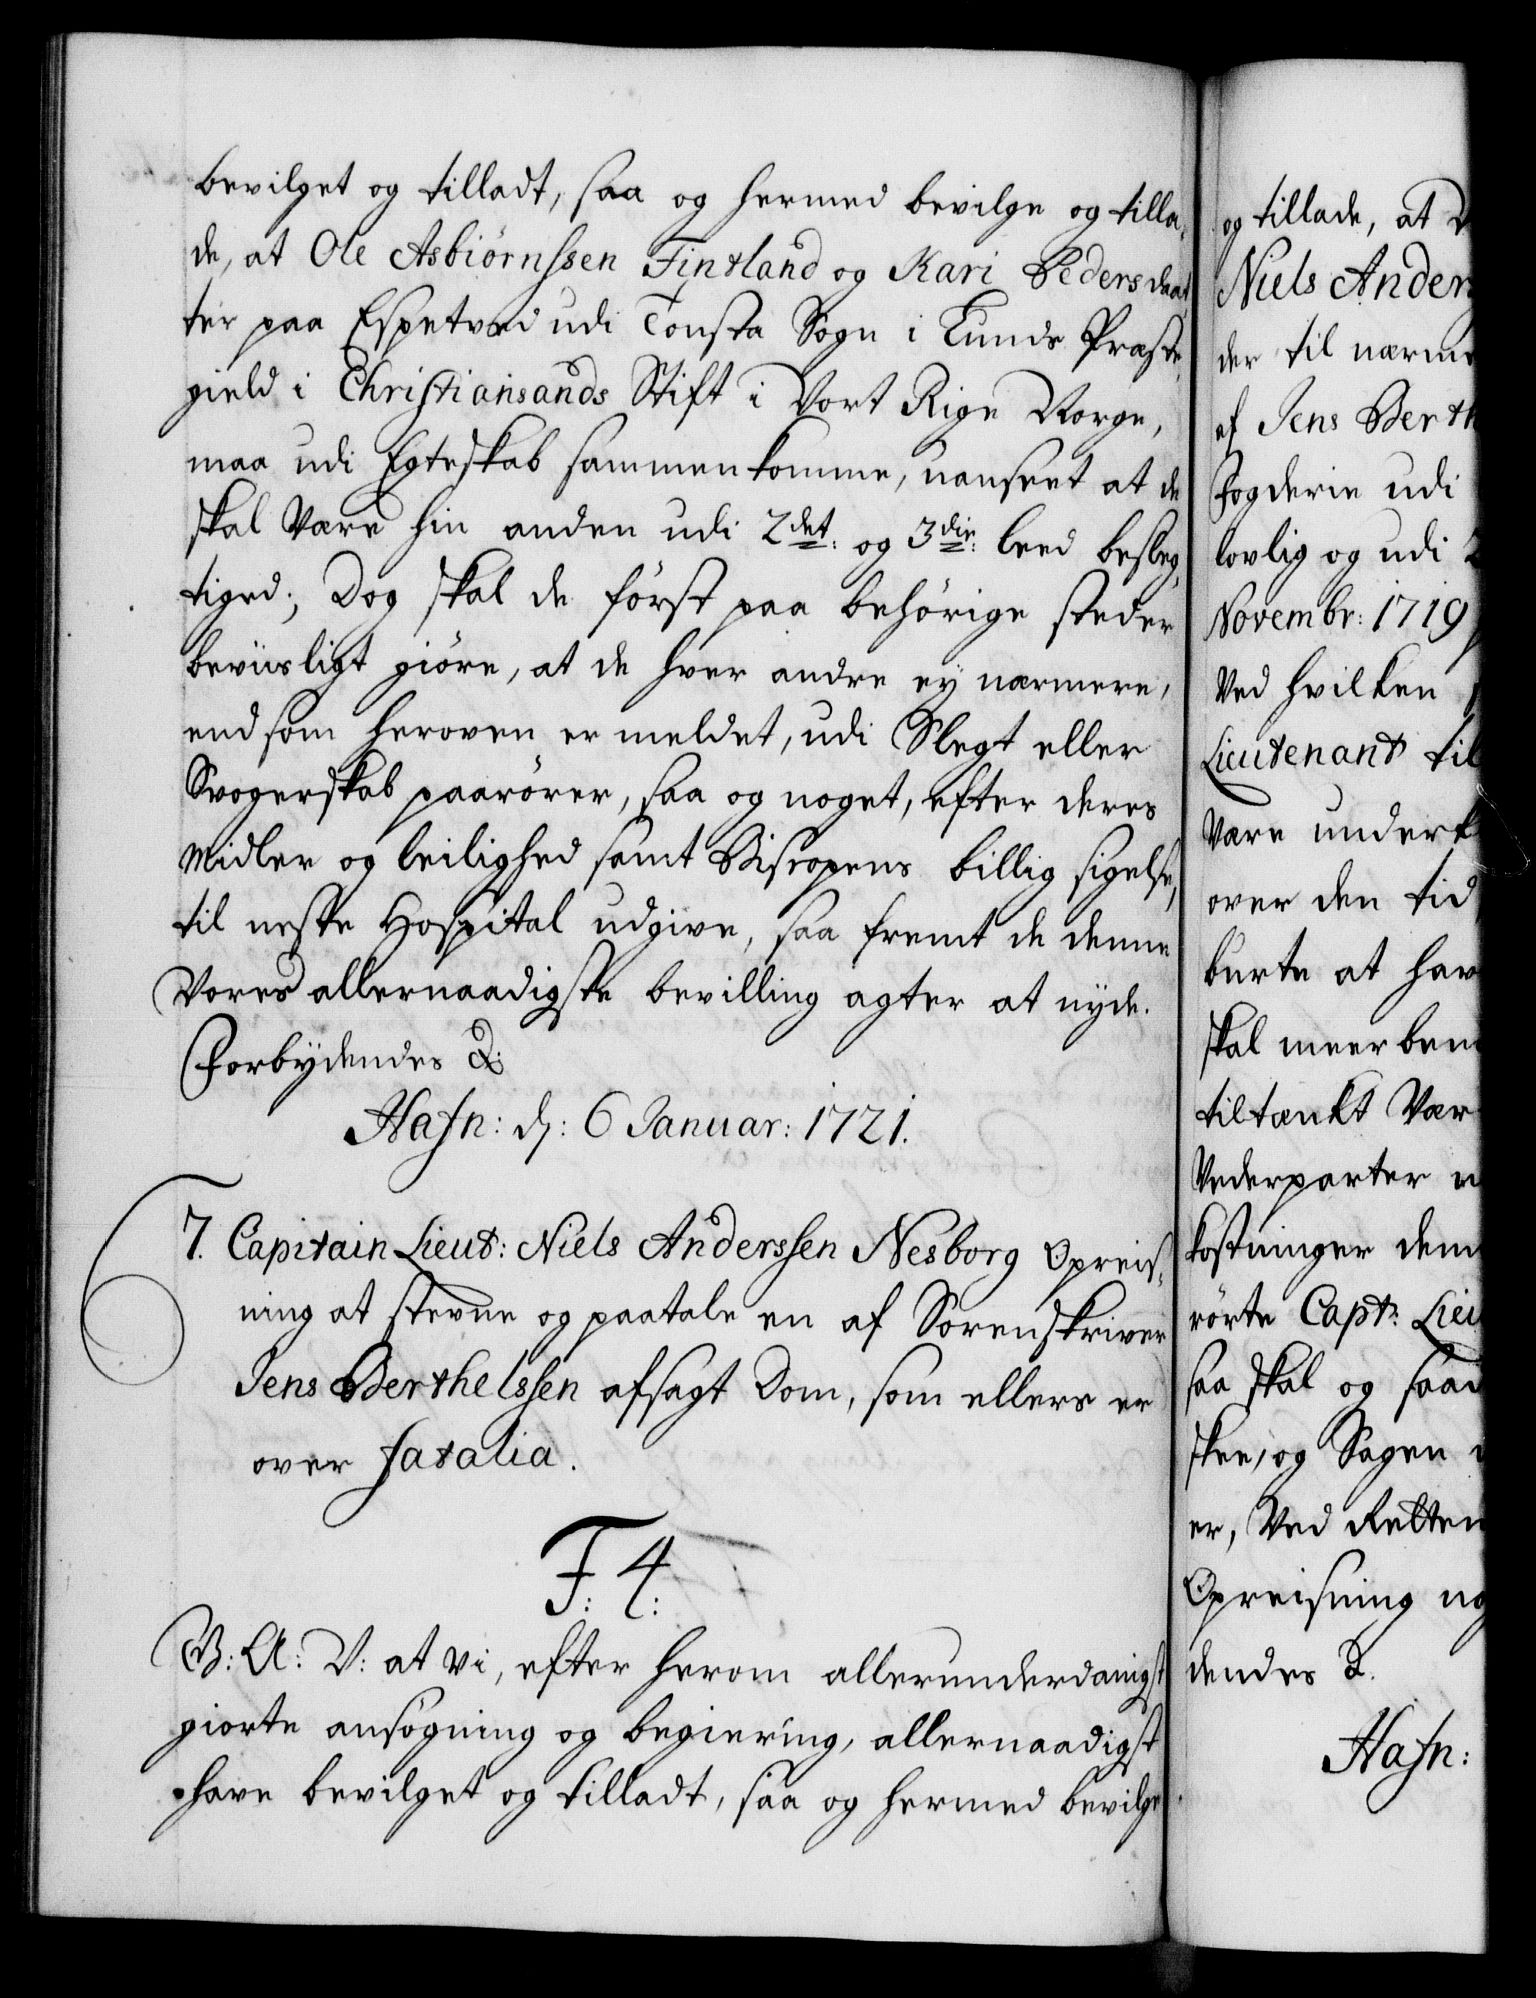 bevilget og tilladt, saa og hermed bevilge og tilla,
de, at Ole Asbiørnssen Fintland og Kari Pedersdaat,
ter paa Espetved udi Tonsta Sogn i Lunds Præste,
gield i Christiansands Stift i Vort Rige Norge,
maa udi Egteskab sammenkomme, uanseet at de
skal Være hin anden udi 2det: og 3die: leed besleg,
tiged; Dog skal de først paa behørige steder
beviisligt giøre, at de hver andre ey nærmere,
end som heroven er meldet, udi Slegt eller
Svogerskab paarører, saa og noget, efter deres
Midler og leilighed samt Biscopens billig sigelse,
til neste Hospital udgive, saa fremt de denne
Vores allernaadigste bevilling agter at nyde.
Forbydendes &:
Hafn: d: 6 Januar: 1721.
7. Capitain Lieut: Niels Anderssen Nesborg Opreis,
ning at stevne og paatale en af Sorenskriver
Jens Berthelssen afsagt Dom, som ellers er
over fatalia.
F: 4:
G: A: V: at Vi, efter herom allerunderdanigst
giorte ansøgning og begiering, allernaadigst
have bevilget og tilladt, saa og hermed bevilge
og tillade, at
Niels Anders
der til nærme
af Jens Berth
Fogderie udi
lovlig og udi
Novembr: 1719
Ved hvilken
Lieutenant til
Være underk
over den tid
burte at hav
skal meerbem
tiltænkt Vær
Vederparter
kostninger dem
rørte Capt: Lieu
saa skal og saad
skee, og Sagen
er, Ved Retten
Opreisning
dendes &.
Hafn: